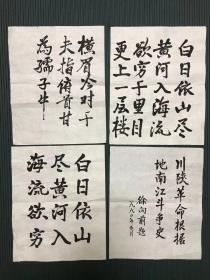 横眉冷对千
夫指俯首甘
為孺子牛
白日依山尽
黄河入海流
欲穷千里目
更上一层楼
白日依山
尽黄河入
海流欲穷
川陕革命根据
地南江斗争史
徐向前题